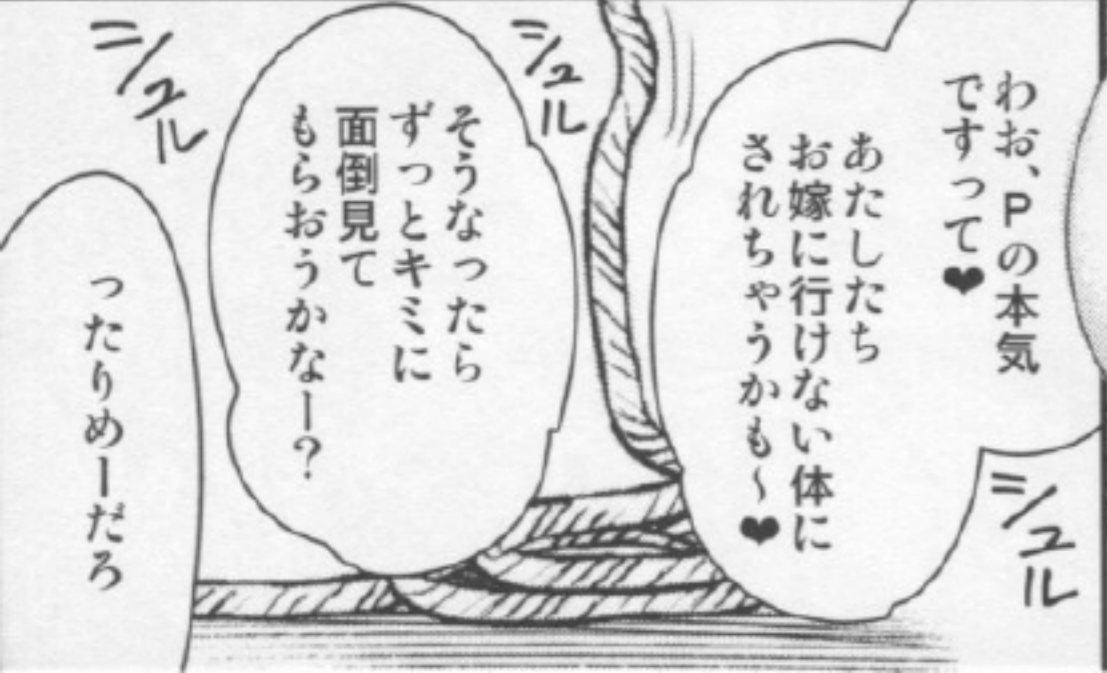 わお、Pの本気
ですって❤
あたしたち
お嫁に行けない体に
されちゃうかも～❤
シュル
シュル
そうなったら
ずっとキミに
面倒見て
もらおうかなー？
シュル
ったりめーだろ